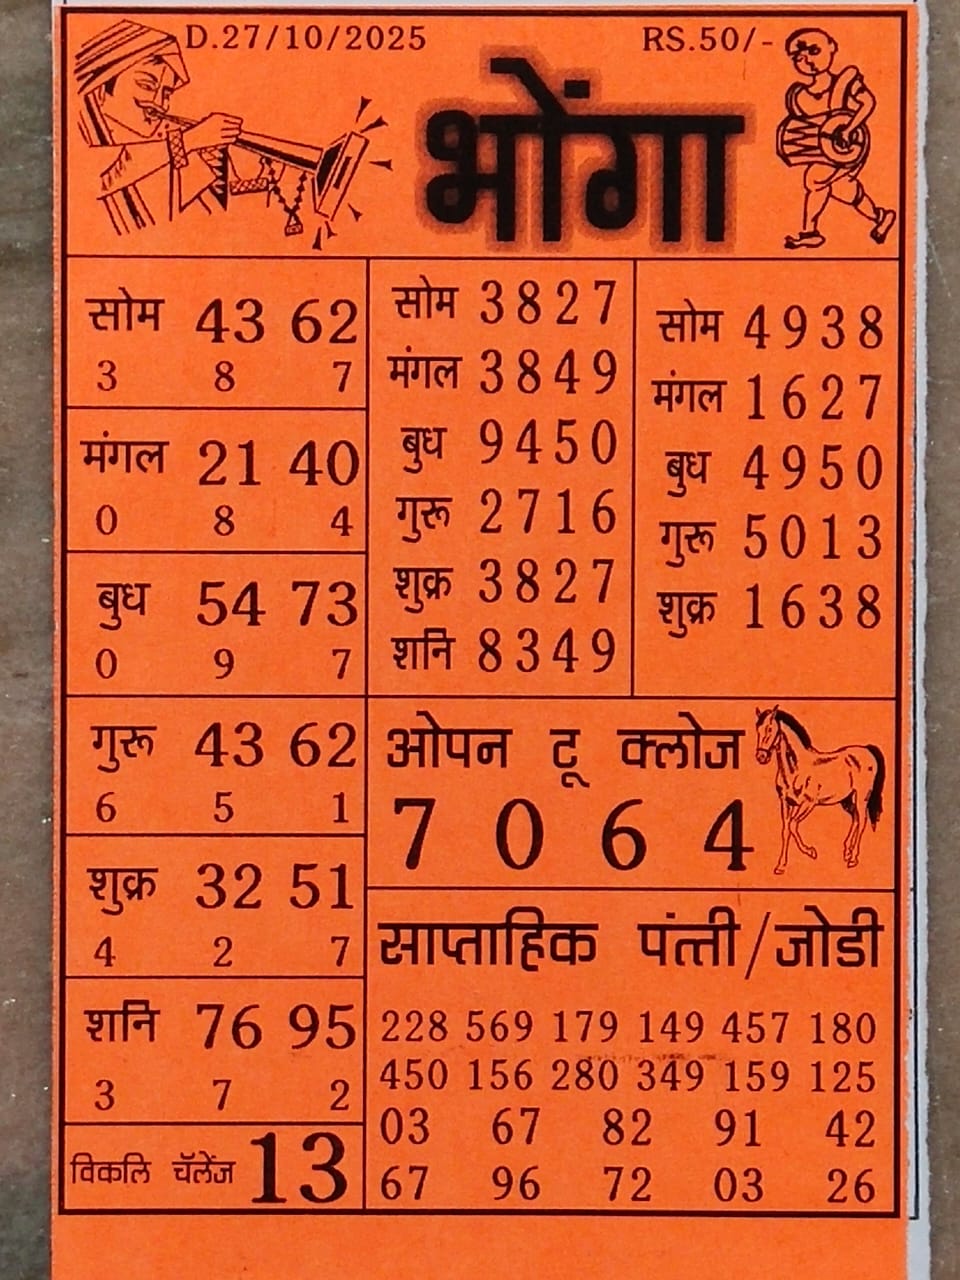 D.27/10/2025 RS.50/-
भोंगा
सोम 43 62
3 8 7
मंगल 21 40
0 8 4
बुध 54 73
0 9 7
गुरू 43 62
6 5 1
शुक्र 32 51
4 2 7
शनि 76 95
3 7 2
विकलि चॅलेंज 13
सोम 3827
मंगल 3849
बुध 9450
गुरू 2716
शुक्र 3827
शनि 8349
सोम 4938
मंगल 1627
बुध 4950
गुरू 5013
शुक्र 1638
ओपन टू क्लोज
7 0 6 4
साप्ताहिक पंत्ती/जोडी
228 569 179 149 457 180
450 156 280 349 159 125
03 67 82 91 42
67 96 72 03 26